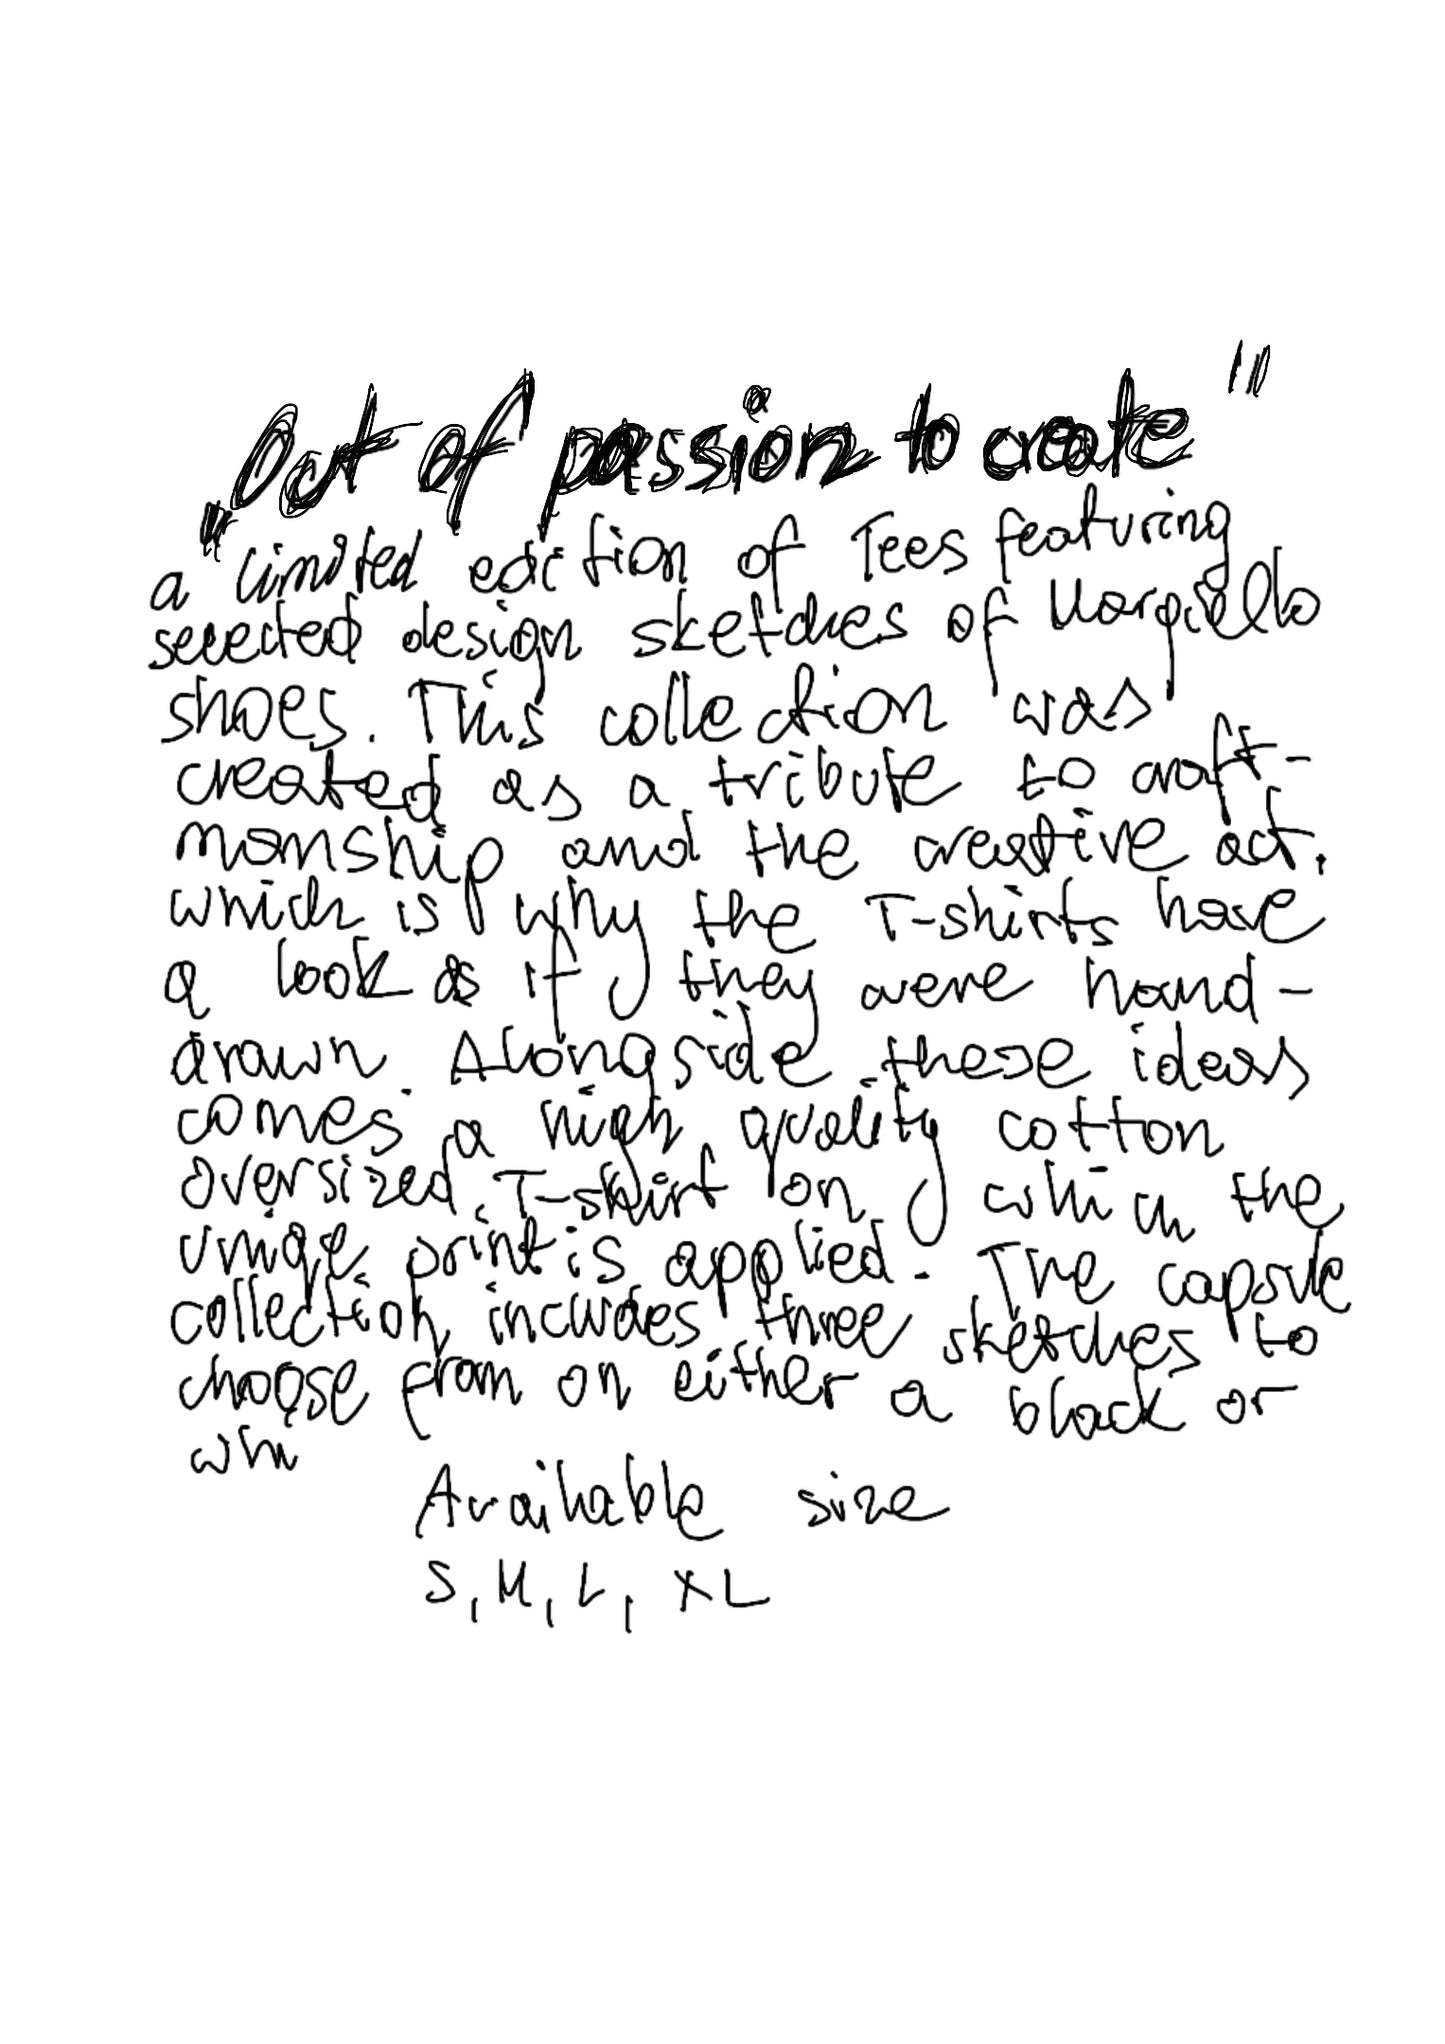 „Out of passion to create"
a limited edition of Tees featuring
selected design sketches of Margiello
shoes. This collection was
created as a tribute to craft-
manship and the creative act.
which is why the T-shirts have
a look as if they were hand-
drawn. Alongside these ideas
comes a high quality cotton
oversized T-shirt on which the
uniqe print is applied. The capsule
collection includes three sketches to
choose from on either a black or
whi
Available size
S, M, L, XL